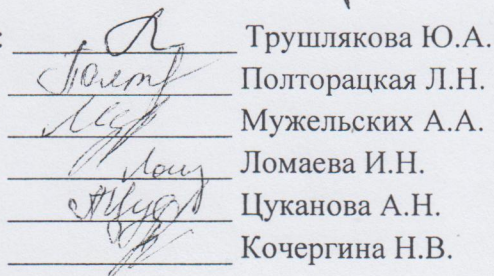 : Трушлякова Ю.А.
Полторацкая Л.Н.
Мужельских А.А.
Ломаева И.Н.
Цуканова А.Н.
Кочергина Н.В.